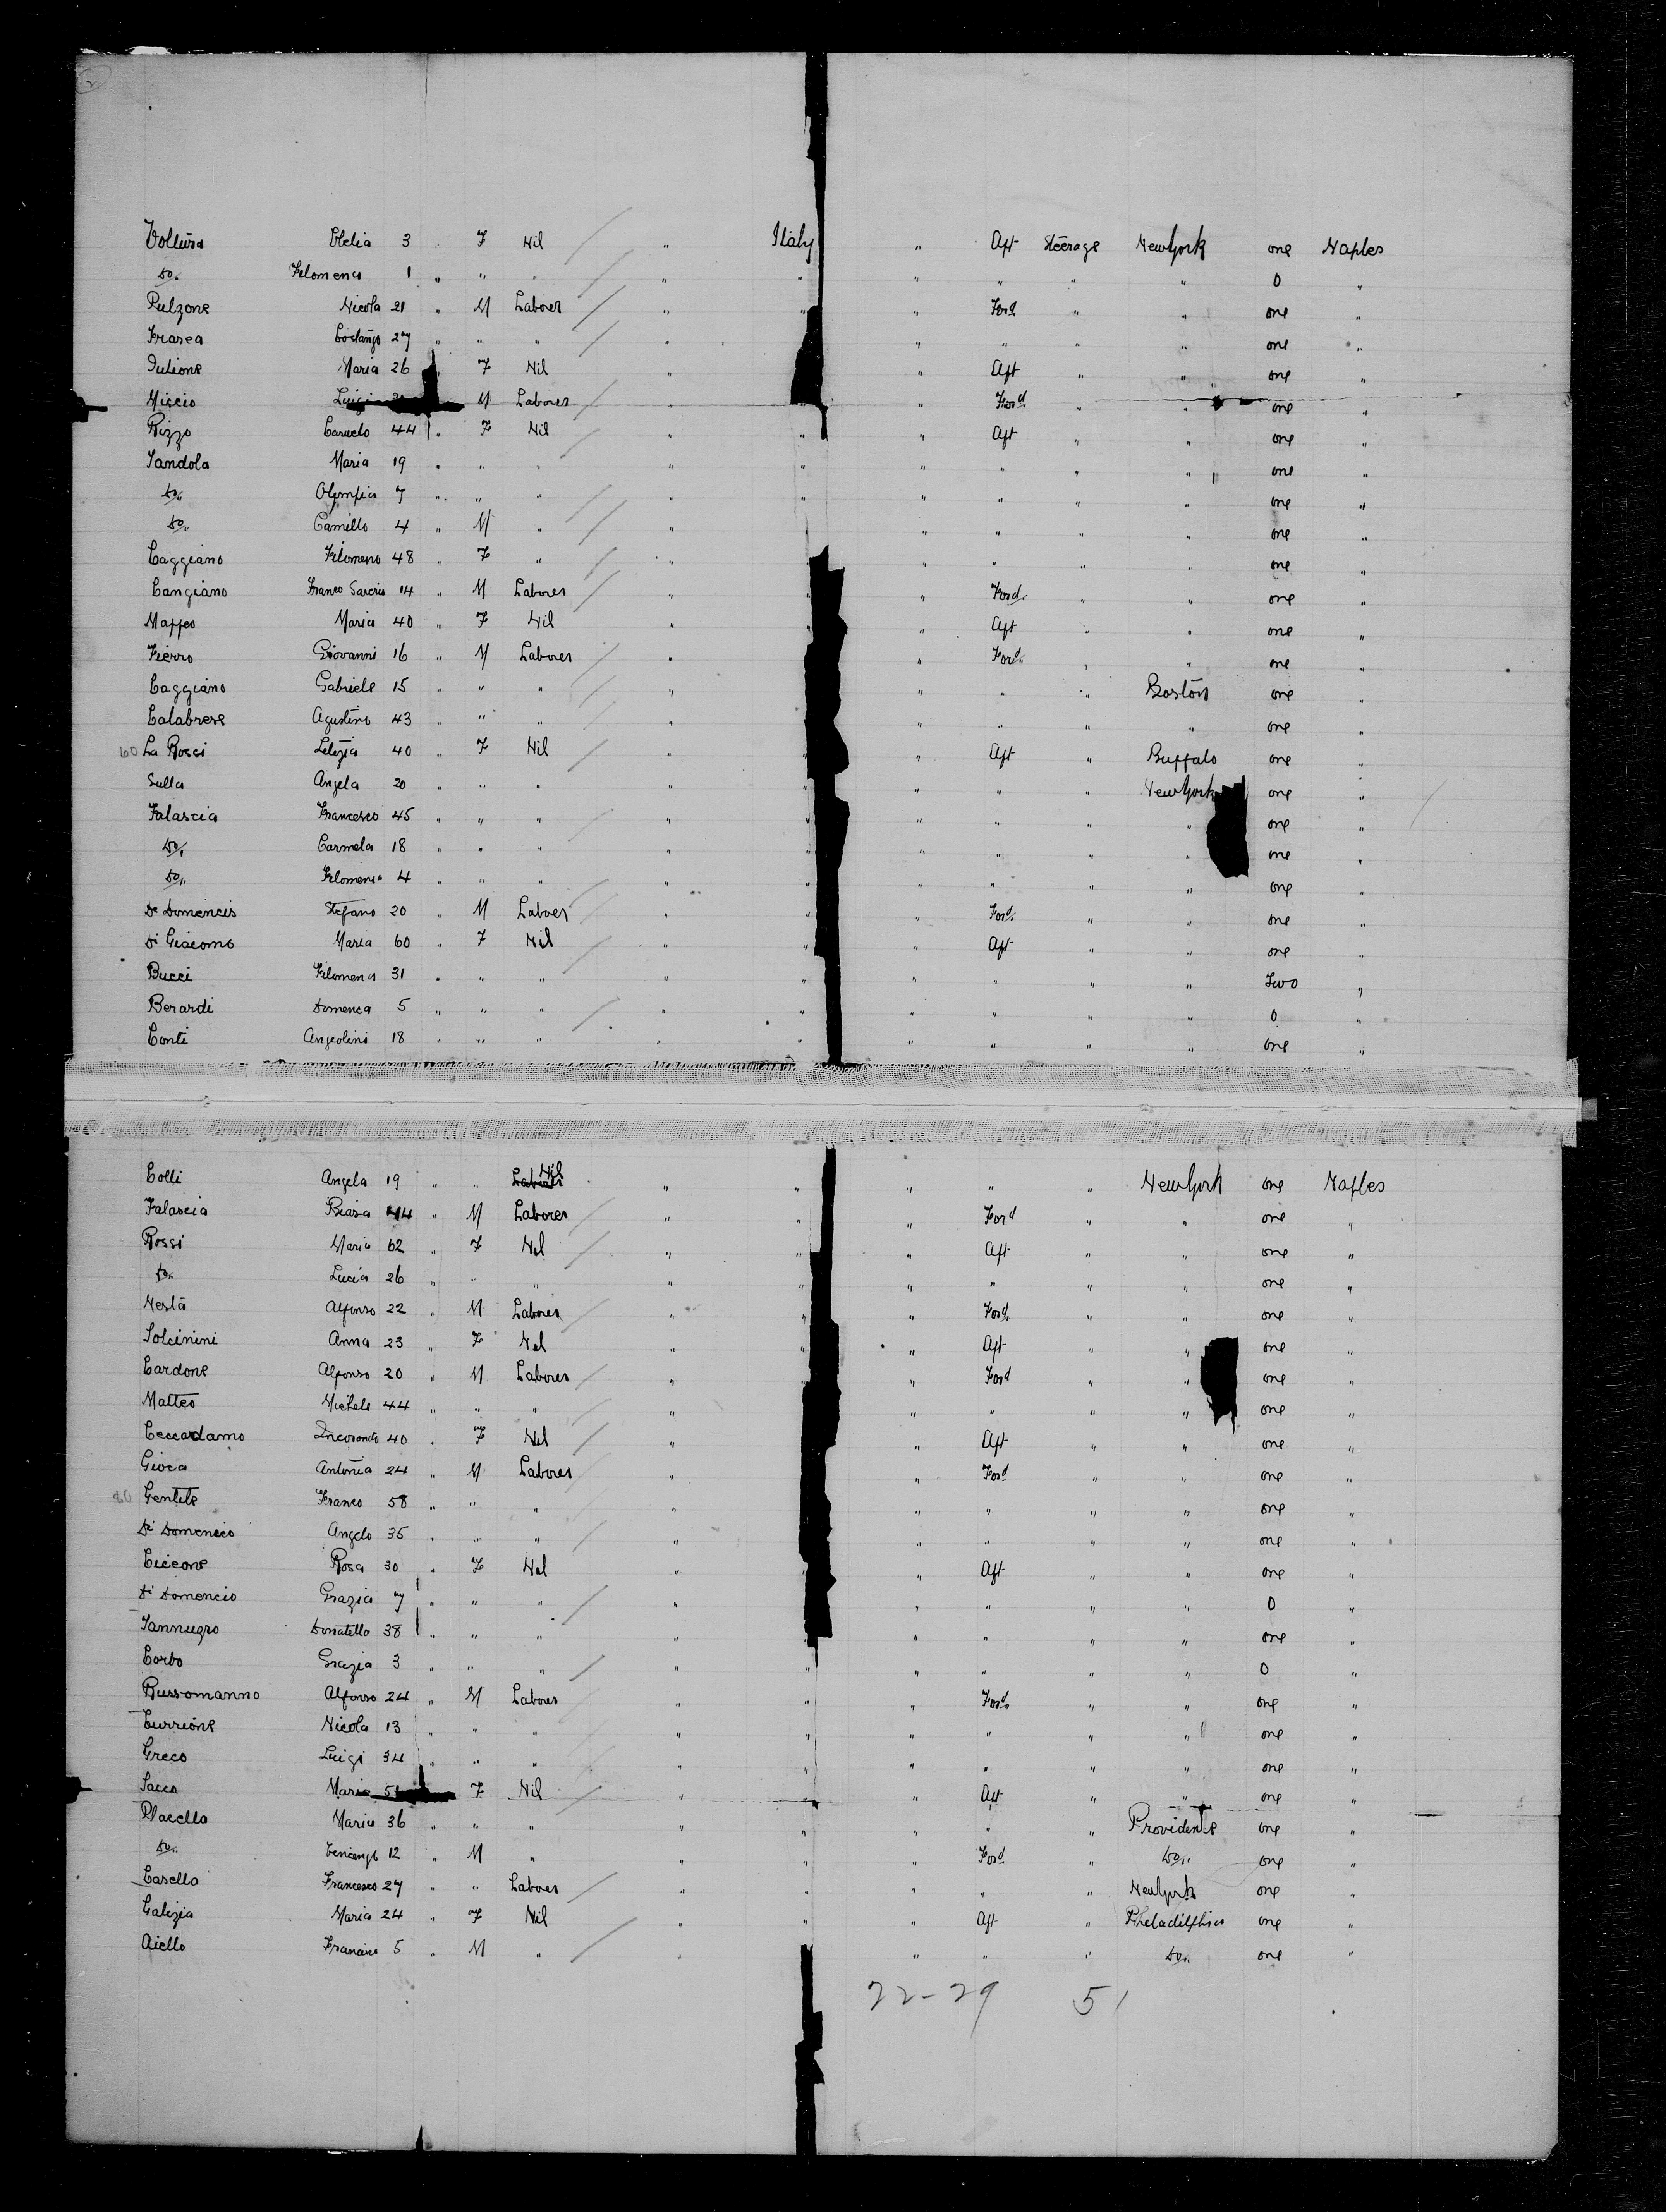 Volturo Clelia 3 " F Nil " Italy " Aft Steerage New York one Naples
Do. Filomena 1 " " " " " " " " " 0 "
Pulzone Nicola 21 " M Laborer " " " Ford " " one "
Frasca Costanzo 27 " " " " " " " " " one "
Iulione Maria 26 F Nil " " Aft " " one "
Miccio Luigi M Laborer " " Ford " " one "
Rizzo Carmelo 44 " F Nil " " " Aft " " one "
Iandola Maria 19 " " " " " " " " " one "
Do. Olympia 7 " " " " " " " " " one "
Do. Camillo 4 " M " " " " " " one "
Caggiano Filomena 48 " F " " " " " " one "
Cangiano Franco Saverio 14 " M Laborer " " " Ford " " one "
Maffeo Maria 40 " F Nil " " Aft " " one "
Fierro Giovanni 16 " M Laborer " " Ford " " one "
Caggiano Gabriele 15 " " " " " " " Boston one "
Calabrese Agustino 43 " " " " " " " one "
60 La Rossi Letizia 40 " F Nil " " " Aft " Buffalo one "
Sulla Angela 20 " " " " " " " " New York one "
Falascia Francesco 45 " " " " " " " " " one "
Do. Carmela 18 " " " " " " " " " one "
Do. Filomena 4 " " " " " " " " " one "
De Domencis Stefano 20 " M Laborer " " " Ford " " one "
Di Giacomo Maria 60 " F Nil " " " Aft " " one "
Bucci Filomena 31 " " " " " " " " " Two "
Berardi Domenca 5 " " " " " " " " " 0 "
Conti Angeolina 18 " " " " " " " " " one "
Colli Angela 19 " " Laborer Nil " " " " " New York one Naples
Falascia Biasa 44 " M Laborer " " " Ford " " one "
Rossi Maria 62 " F Nil " " " Aft " " one "
Do. Lucia 26 " " " " " " " " " one "
Nesta Alfonso 22 " M Laborer " " " Ford " " one "
Solcinini Anna 23 " F Nil " " " Aft " " one "
Cardone Alfonso 20 " M Laborer " " " Ford " " one "
Matteo Michele 44 " " " " " " " " one "
Ceccardamo 40 " F Nil " " Aft " " one "
Gioca Antonia 24 " M Laborer " " Ford " " one "
80 Gentile Franco 58 " " " " " " " " one "
Di Domenico Angelo 35 " " " " " " " " one "
Ciccone Rosa 30 " F Nil " " " Aft " " one "
Di Domencio Grazia 7 " " " " " " " " 0 "
Iannugro Donatello 38 " " " " " " " " one "
Corbo Grazia 3 " " " " " " " " " 0 "
Russomanno Alfonso 24 " M Laborer " " " Ford " " one "
Currione Nicola 13 " " " " " " " " " one "
Greco Luigi 34 " " " " " " " " " one "
Sacco Maria 51 F Nil " " " Aft " " one "
Placella Maria 36 " " " " " " " " Providence one "
Do. Vincenzo 12 " M " " " " Ford " Do. one "
Casella Francesco 27 " " Laborer " " " " " New York one "
Galizia Maria 24 " F Nil " " " Aft " Pheladilphia one "
Aiello Francisco 5 " M " " " " " Do. one "
22-29 51